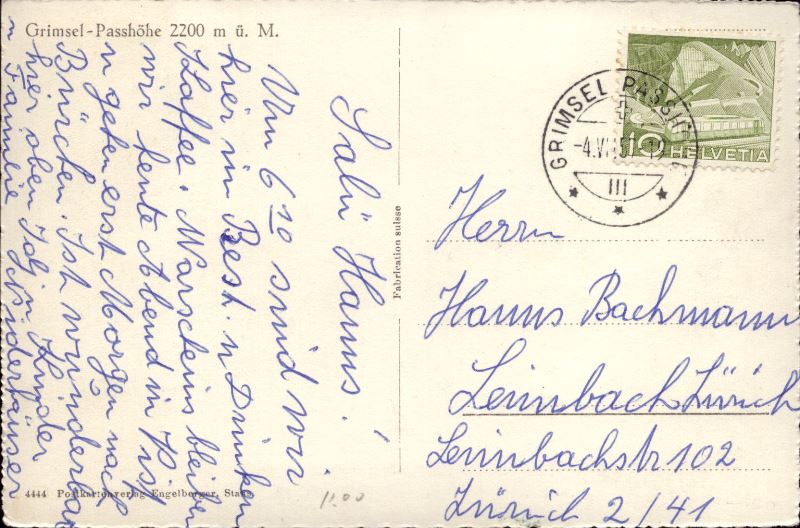 Grimsel-Passhöhe 2200 m ü. M.
Salü Hanns!
Um 6 10 sind wir
hier im Rest. n Drinken
Kaffee. Warscheins bleiben
wir heute Abend in Hisf
u gehen erst Morgen nach
Brücken. Ist wunderbar
hier oben Idj u Kinder
n Familie Niderhäuser
4444 Postkartenverlag Engelberger, Stans
11.00
Fabrication suisse
GRIMSEL PASSHÖHE
-4.VII.51-19
III
10 HELVETIA
Herrn
Hanns Bachmann
Leimbach Zürich
Leimbachstr 102
Zürich 2/41